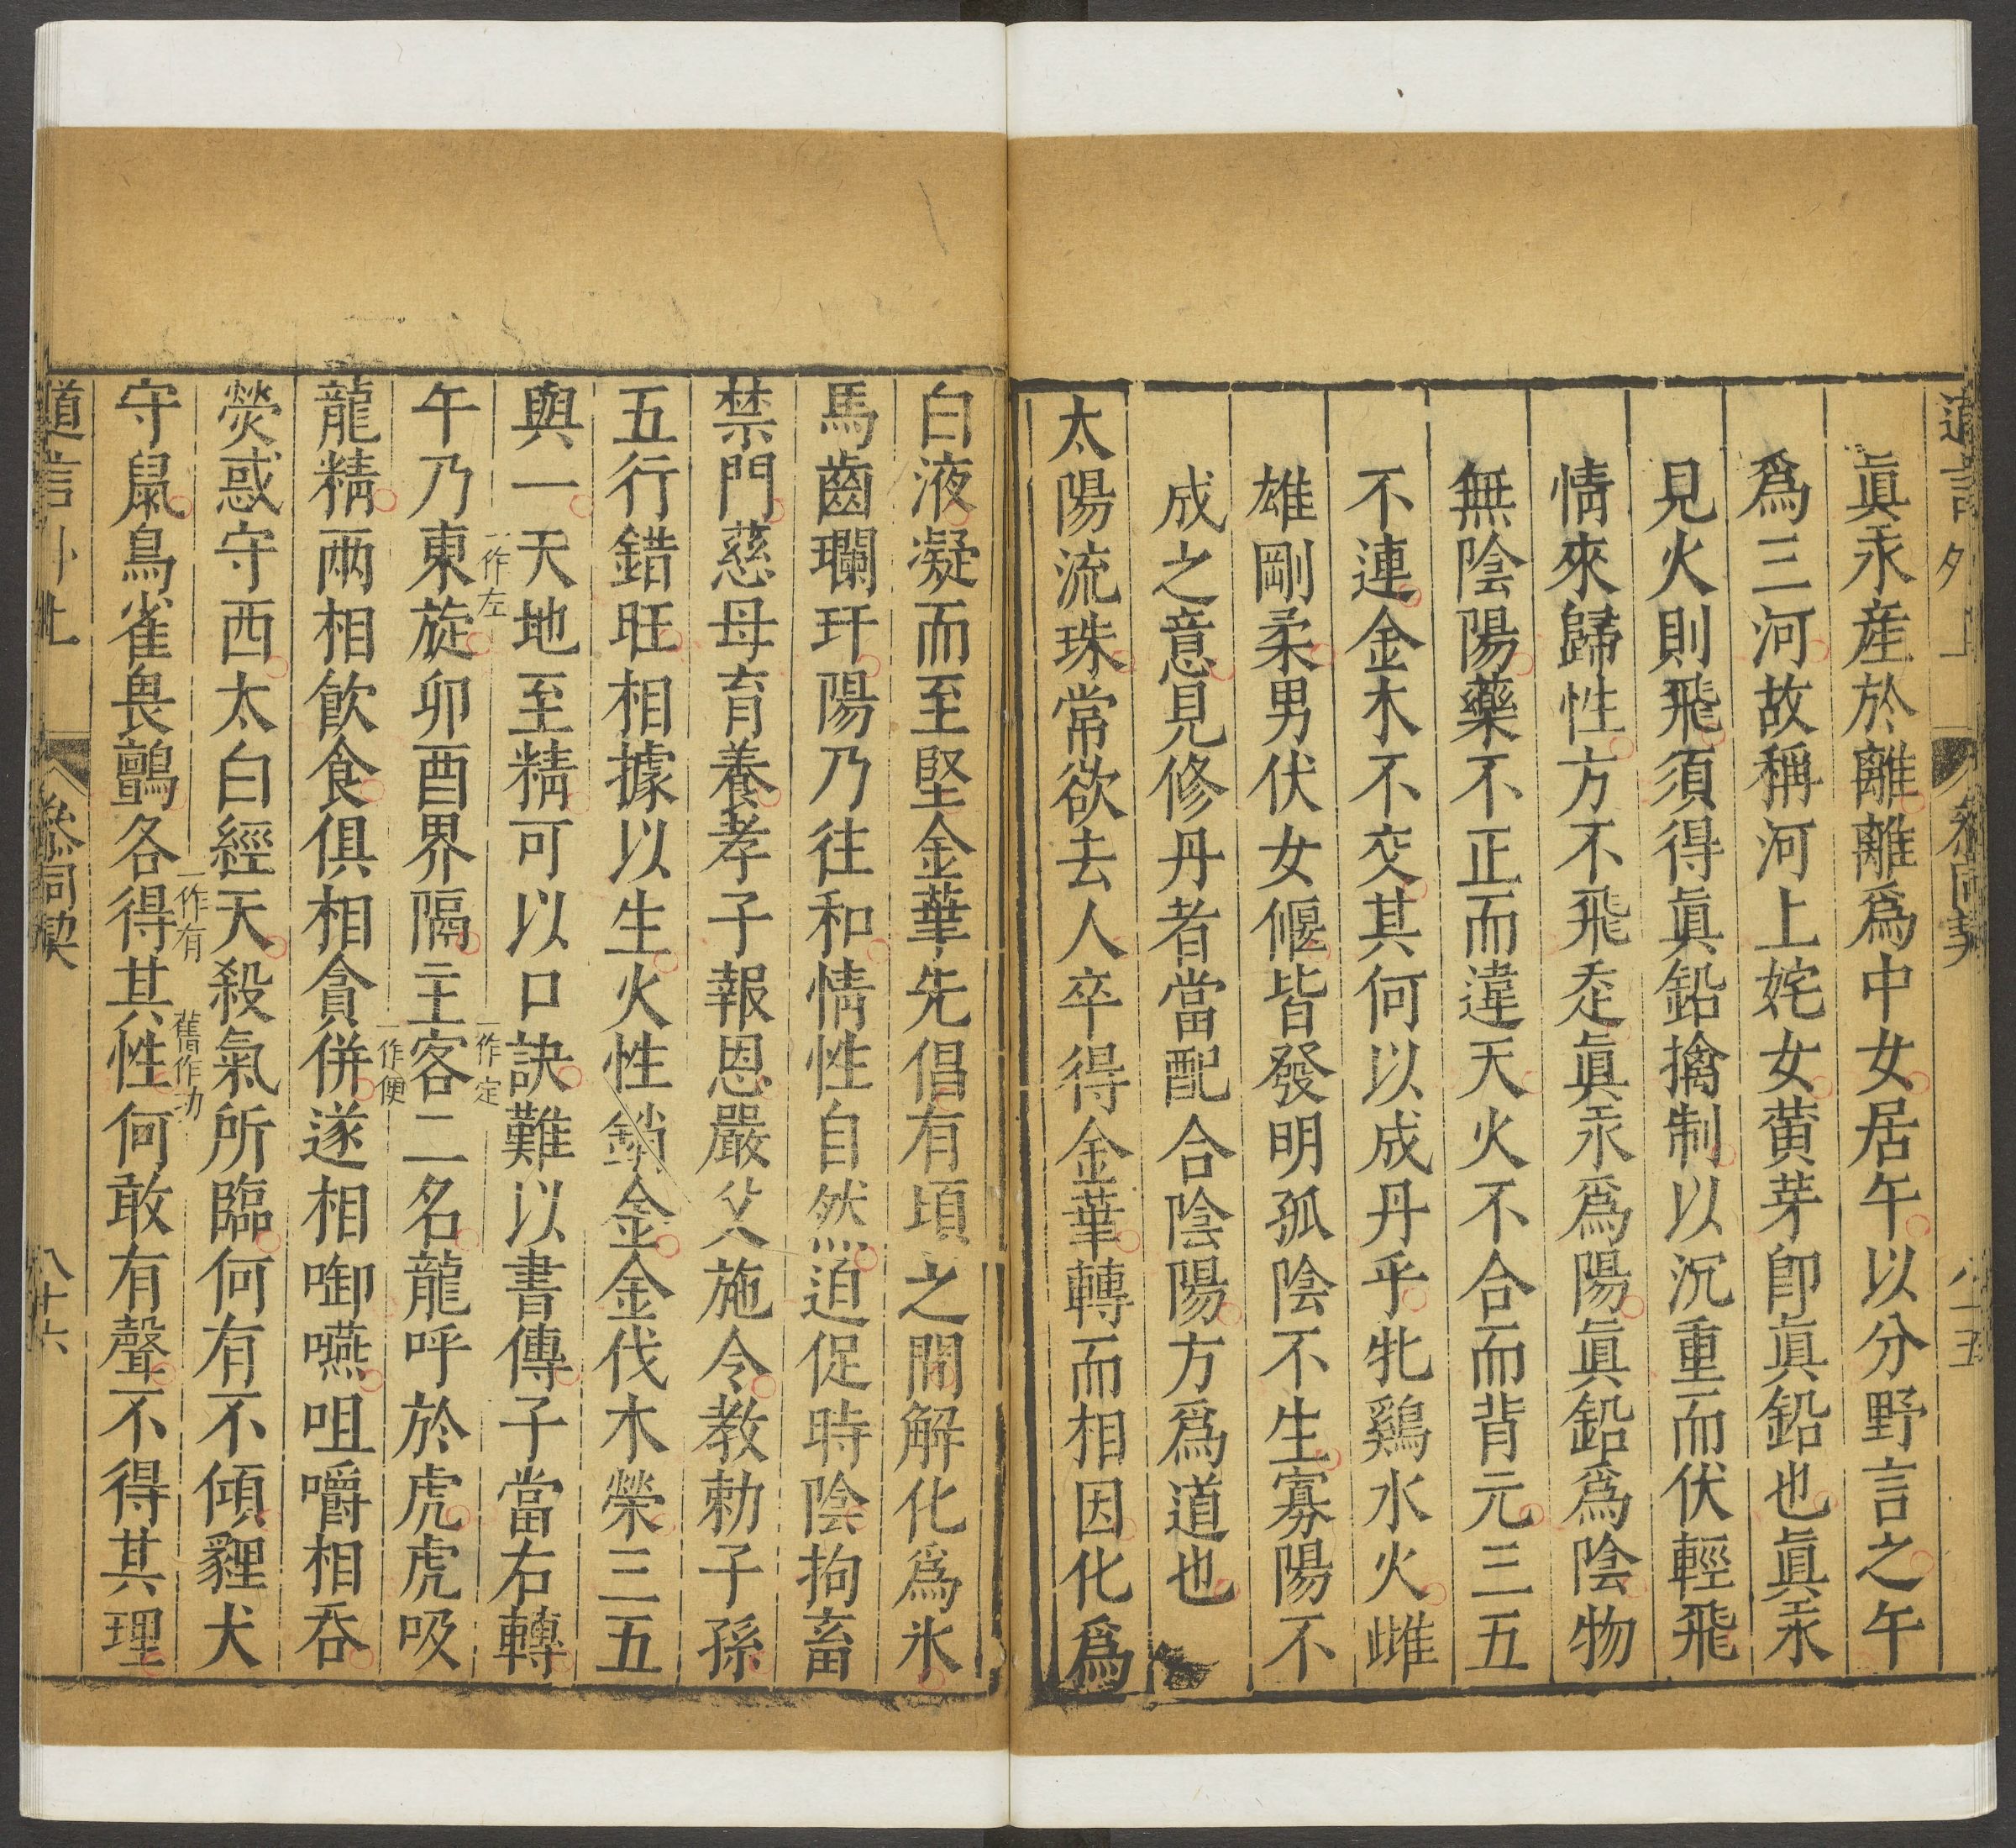 眞汞産於離離爲中女居午以分野言之午
爲三河故稱河上姹女黄芽卽眞鉛也眞汞
見火則飛須得眞鉛擒制以沉重而伏輕飛
情來歸性方不飛走眞汞爲陽眞鉛爲陰物
無陰陽藥不正而違天火不合而背元三五
不連金木不交其何以成丹乎牝鷄水火雌
雄剛柔男伏女偃皆發明孤陰不生寡陽不
成之意見修丹者當配合陰陽方爲道也
太陽流珠常欲去人卒得金華轉而相因化爲
白液凝而至堅金華先倡有頃之間解化爲氷
馬齒瓓玕陽乃往和情性自然迫促時陰拘畜
禁門慈母育養孝子報恩嚴父施令教勑子孫
五行錯旺相據以生火性銷金金伐木榮三五
與一天地至精可以口訣難以書傳子當右轉
一作左
一作定
午乃東旋卯酉界隔主客二名龍呼於虎虎吸
一作便
龍精兩相飲食俱相貪併遂相㗸嚥咀嚼相吞
熒惑守西太白經天殺氣所臨何有不傾貍犬
一作有
舊作功
守鼠鳥雀畏鸇各得其性何敢有聲不得其理
道言外
參同契
八十六